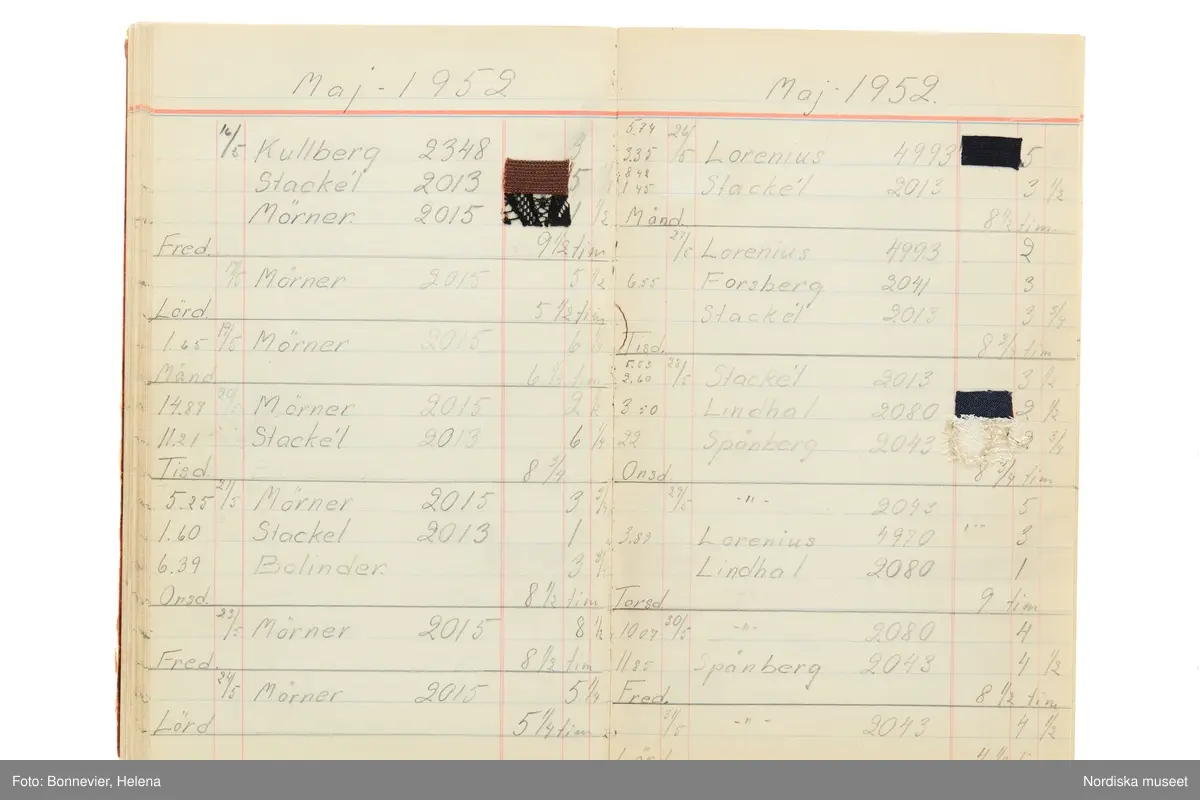 Maj - 1952
16/5 Kullberg 2348 3
Stackél 2013 5
Mörner. 2015 1 1/2
Fred. 9 1/2 tim
17/5 Mörner 2015 5 1/2
Lörd. 5 1/2 tim
1.65 19/5 Mörner 2015 6
Månd 6 tim
14.87 20/5 Mörner 2015 2
11.21 Stackél 2013 6 1/4
Tisd 8 3/4
5.25 21/5 Mörner 2015 3 3/4
1.60 Stackel 2013 1
6.39 Bolinder. 3 3/4
Onsd. 8 1/2 tim
23/5 Mörner 2015 8 1/2
Fred. 8 1/2 tim
24/5 Mörner 2015 5 1/4
Lörd 5 1/4 tim
Maj - 1952.
5.74 26/5
3.35 Lorenius 4993 5
8.48
1.45 Stackél 2013 3 1/2
Månd. 8 1/2 tim.
27/5 Lorenius 4993 2
6.55 Forsberg 2041 3
Stackél 2013 3 3/4
Tisd. 8 3/4 tim
28/5
2.60 Stackél 2013 3 1/2
3.50 Lindhal 2080 2 1/2
22 Spånberg 2043 2 3/4
Onsd 8 3/4 tim
29/5 -"- 2043 5
3.87 Lorenius 4970 -"- 3
Lindhal 2080 1
Torsd. 9 tim
10.07 30/5 -"- 2080 4
11.85 Spånberg 2043 4 1/2
Fred. 8 1/2 tim
31/5 -"- 2043 4 1/2
Lörd
Foto: Bonnevier, Helena
Nordiska museet